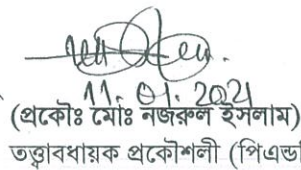 11.01.2021
(প্রকৌঃ মোঃ নজরুল ইসলাম)
তত্ত্বাবধায়ক প্রকৌশলী (পিএন্ড